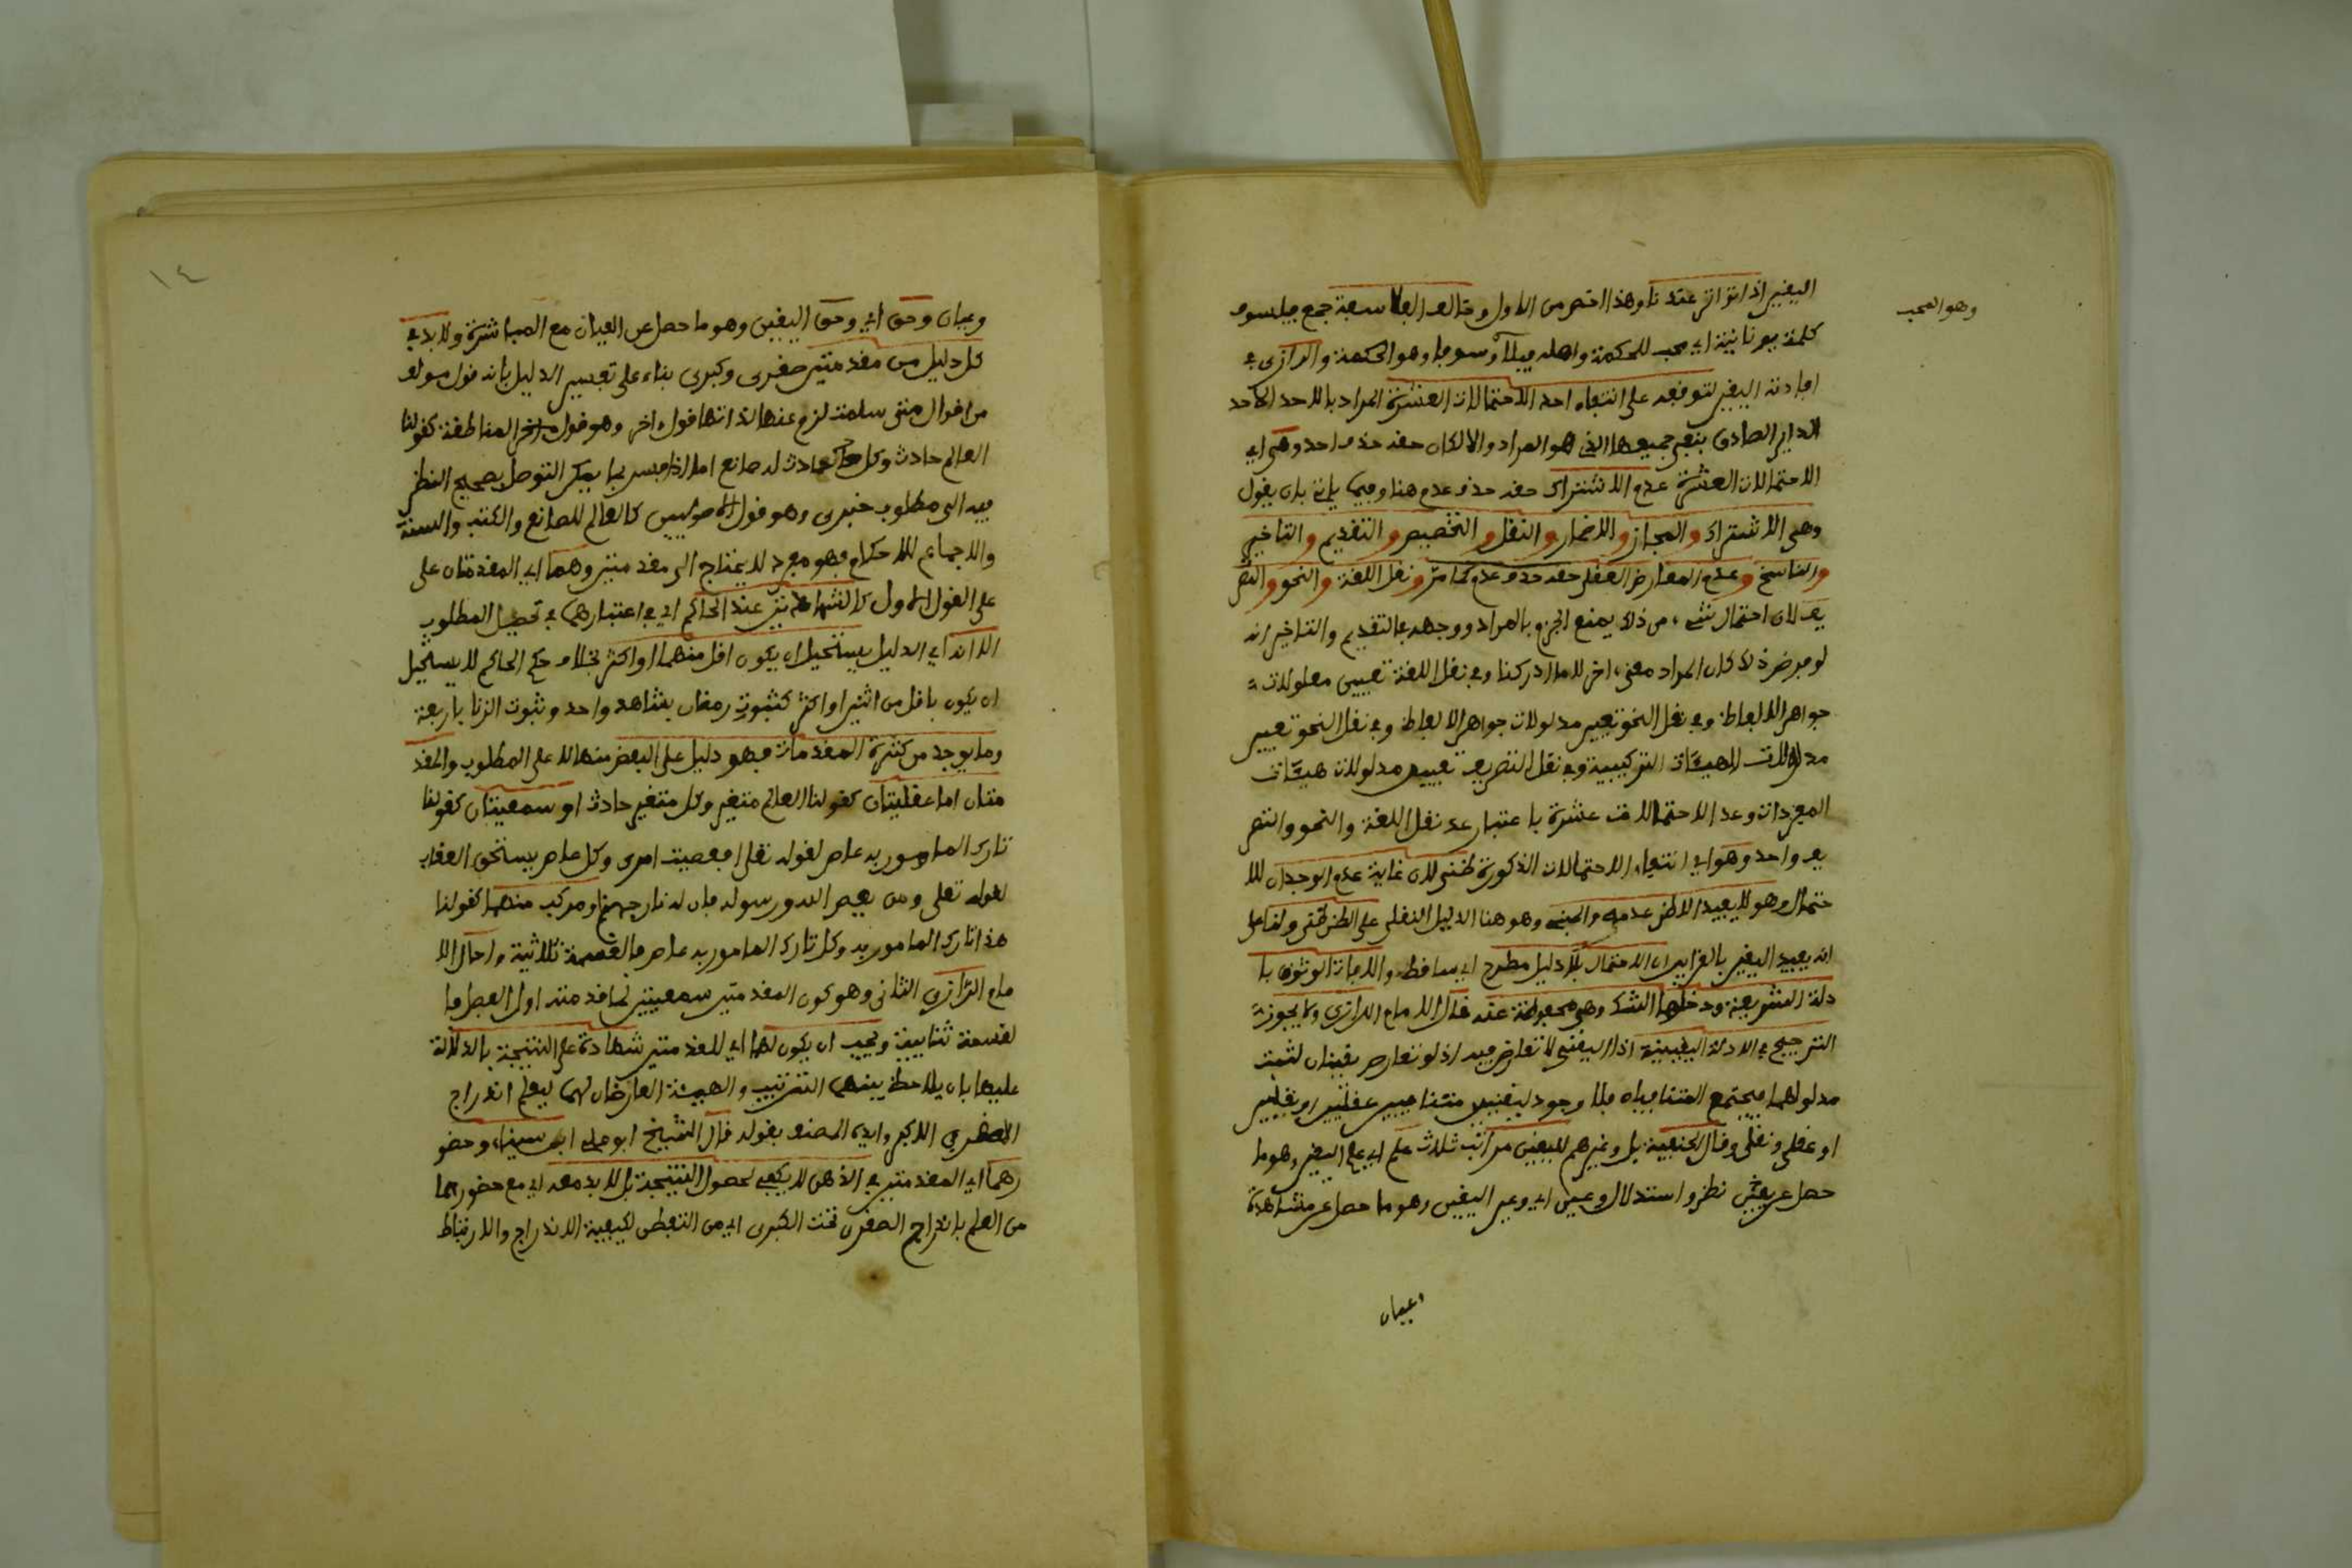 اليقين اذا تواتر عندنا وهذا اخص من الاول وخالف الفلاسفة جمع فيلسوف
وهو المحب
كلمة يونانية اي محب للحكمة واصله فيلا وسوفا وهو الحكمة والرازي في
افادته اليقين لتوقفه على انتفاء احد الاحتمالات العشرة المراد بالاحد الاحد
الداير الصادق بنفي جميعها الذي هو المراد والا لكان حقه حذف احد وهي اي
الاحتمالات العشرة عدم الاشتراك حقه حذف عدم هنا وفيما ياتي بان يقول
وهي الاشتراك والمجاز والاضمار والنقل والتخصيص والتقديم والتاخير
والناسخ وعدم المعارض العقلي حقه حذف عدم كما مر ونقل اللغة والنحو والتصر
يف لان احتمال شيء من ذلك يمنع الجزم بالمراد ووجهه في التقديم والتاخير انه
لو فرض ذلك كان المراد معنى اخر لا ما ادركنا وفي نقل اللغة تغيير مدلولات
جواهر الالفاظ وفي نقل النحو تغيير مدلولات جواهر الالفاظ وفي نقل النحو تغيير
مدلولات الهيئات التركيبية وفي نقل التصريف تغيير مدلولات هيئات
المفردات وعد الاحتمالات عشرة باعتبار عد نقل اللغة والنحو والتصر
يف واحد وهو اي انتفاء الاحتمالات المذكورة ظني لان غايته عدم الوجدان للا
حتمال وهو لا يفيد الا ظن عدمه والمبني وهو هنا الدليل النقلي على الظن ظني ولنا على
انه يفيد اليقين بالقراين ان الاحتمال بلا دليل مطرح اي ساقط والا فات الوثوق با
دلة الشريعة ودخلها الشك وهي محفوظة عنه قال الامام الرازي ولا يجوز
الترجيح في الادلة اليقينية اذ اليقيني لا تعارض فيه اذ لو تعارض يقينان لثبت
مدلولهما فيجتمع المتنافيان فلا وجود ليقينيين متنافيين عقليين او نقليين
او عقلي ونقلي وقال الحنفية بل وغيرهم لليقين مراتب ثلاث علم اي علم اليقين وهو ما
حصل عن نظر واستدلال وعين اي وعين اليقين وهو ما حصل عن مشاهدة
وعيان
١٤
وعيان وحق اي وحق اليقين وهو ما حصل عن العيان مع المباشرة ولا بد في
كل دليل من مقدمتين صغرى وكبرى بناء على تفسير الدليل بانه قول مولف
من اقوال متى سلمت لزم عنها لذاتها قول اخر وهو قول المناطقة كقولنا
العالم حادث وكل حادث له صانع اما اذا فسر بما يمكن التوصل بصحيح النظر
فيه الى مطلوب خبري وهو قول الاصوليين كالعالم للصانع والكتب والسنة
والاجماع للاحكام فهو مفرد لا يحتاج الى مقدمتين وهما اي المقدمتان على
على القول الاول كالشاهدين عند الحاكم اي في اعتبارهما في تحصيل المطلوب
الا انه اي الدليل يستحيل ان يكون اقل منهما او اكثر بخلاف حكم الحاكم لا يستحيل
ان يكون باقل من اثنين او اكثر كثبوت رمضان بشاهد واحد وثبوت الزنا باربعة
وما يوجد من كثرة المقدمات فهو دليل على البعض منها لا على المطلوب والمقد
متان اما عقليتان كقولنا العالم متغير وكل متغير حادث او سمعيتان كقولنا
تارك المامور به عاص لقوله تعلى افعصيت امري وكل عاص يستحق العقاب
لقوله تعلى ومن يعص الله ورسوله فان له نار جهنم او مركب منهما كقولنا
هذا تارك المامور به وكل تارك المامور به عاص فالقسمة ثلاثية واحال الا
مام الرازي الثاني وهو كون المقدمتين سمعيتين لما قدمته اول الفصل فا
لقسمة ثنايية ويجب ان يكون لهما اي للمقدمتين شهادة على النتيجة بالدلالة
عليها بان يلاحظ بينهما الترتيب والهيئة العارضان لهما ليعلم اندراج
الاصغر في الاكبر وايده المصنف بقوله قال الشيخ ابو علي ابن سينا وحضو
رهما اي المقدمتين في الذهن لا يكفي لحصول النتيجة بل لا بد معه اي مع حضورهما
من العلم باندراج الصغرى تحت الكبرى اي من التفطن لكيفية الاندراج والارتباط